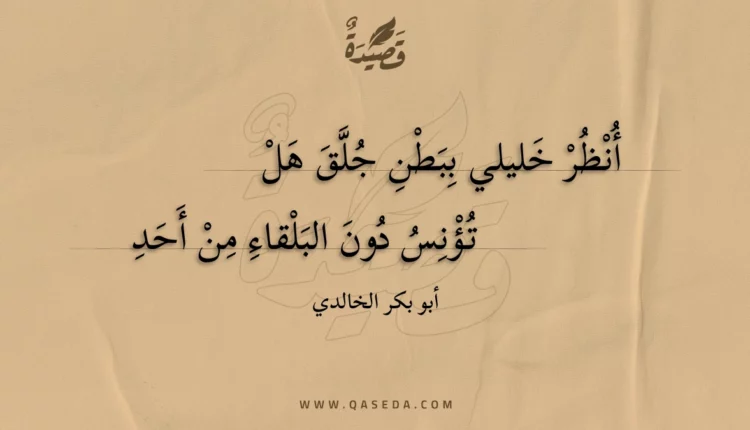 قَصِيْدَةٌ
أُنْظُرْ خَليلي بِبَطْنِ جُلَّقَ هَلْ
تُؤْنِسُ دُونَ البَلْقاءِ مِنْ أَحَدِ
أبو بكر الخالدي
WWW.QASEDA.COM